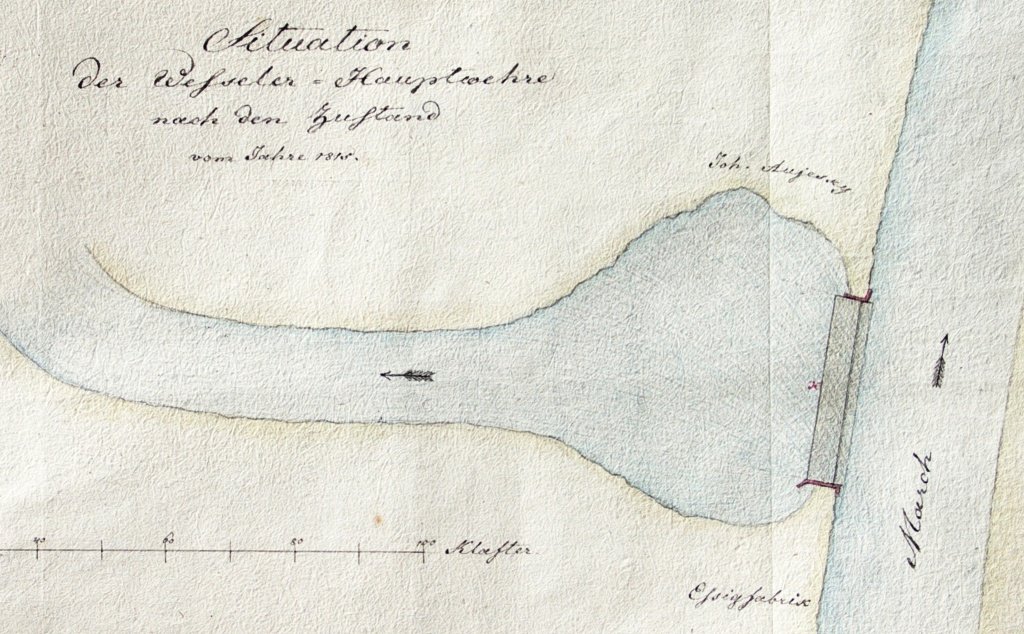 Situation
der Wesseler-Hauptwehre
nach den Zustand
vom Jahre 1815.
Joh. Aujesky
March
40 60 80 100 Klafter.
Essigfabrik